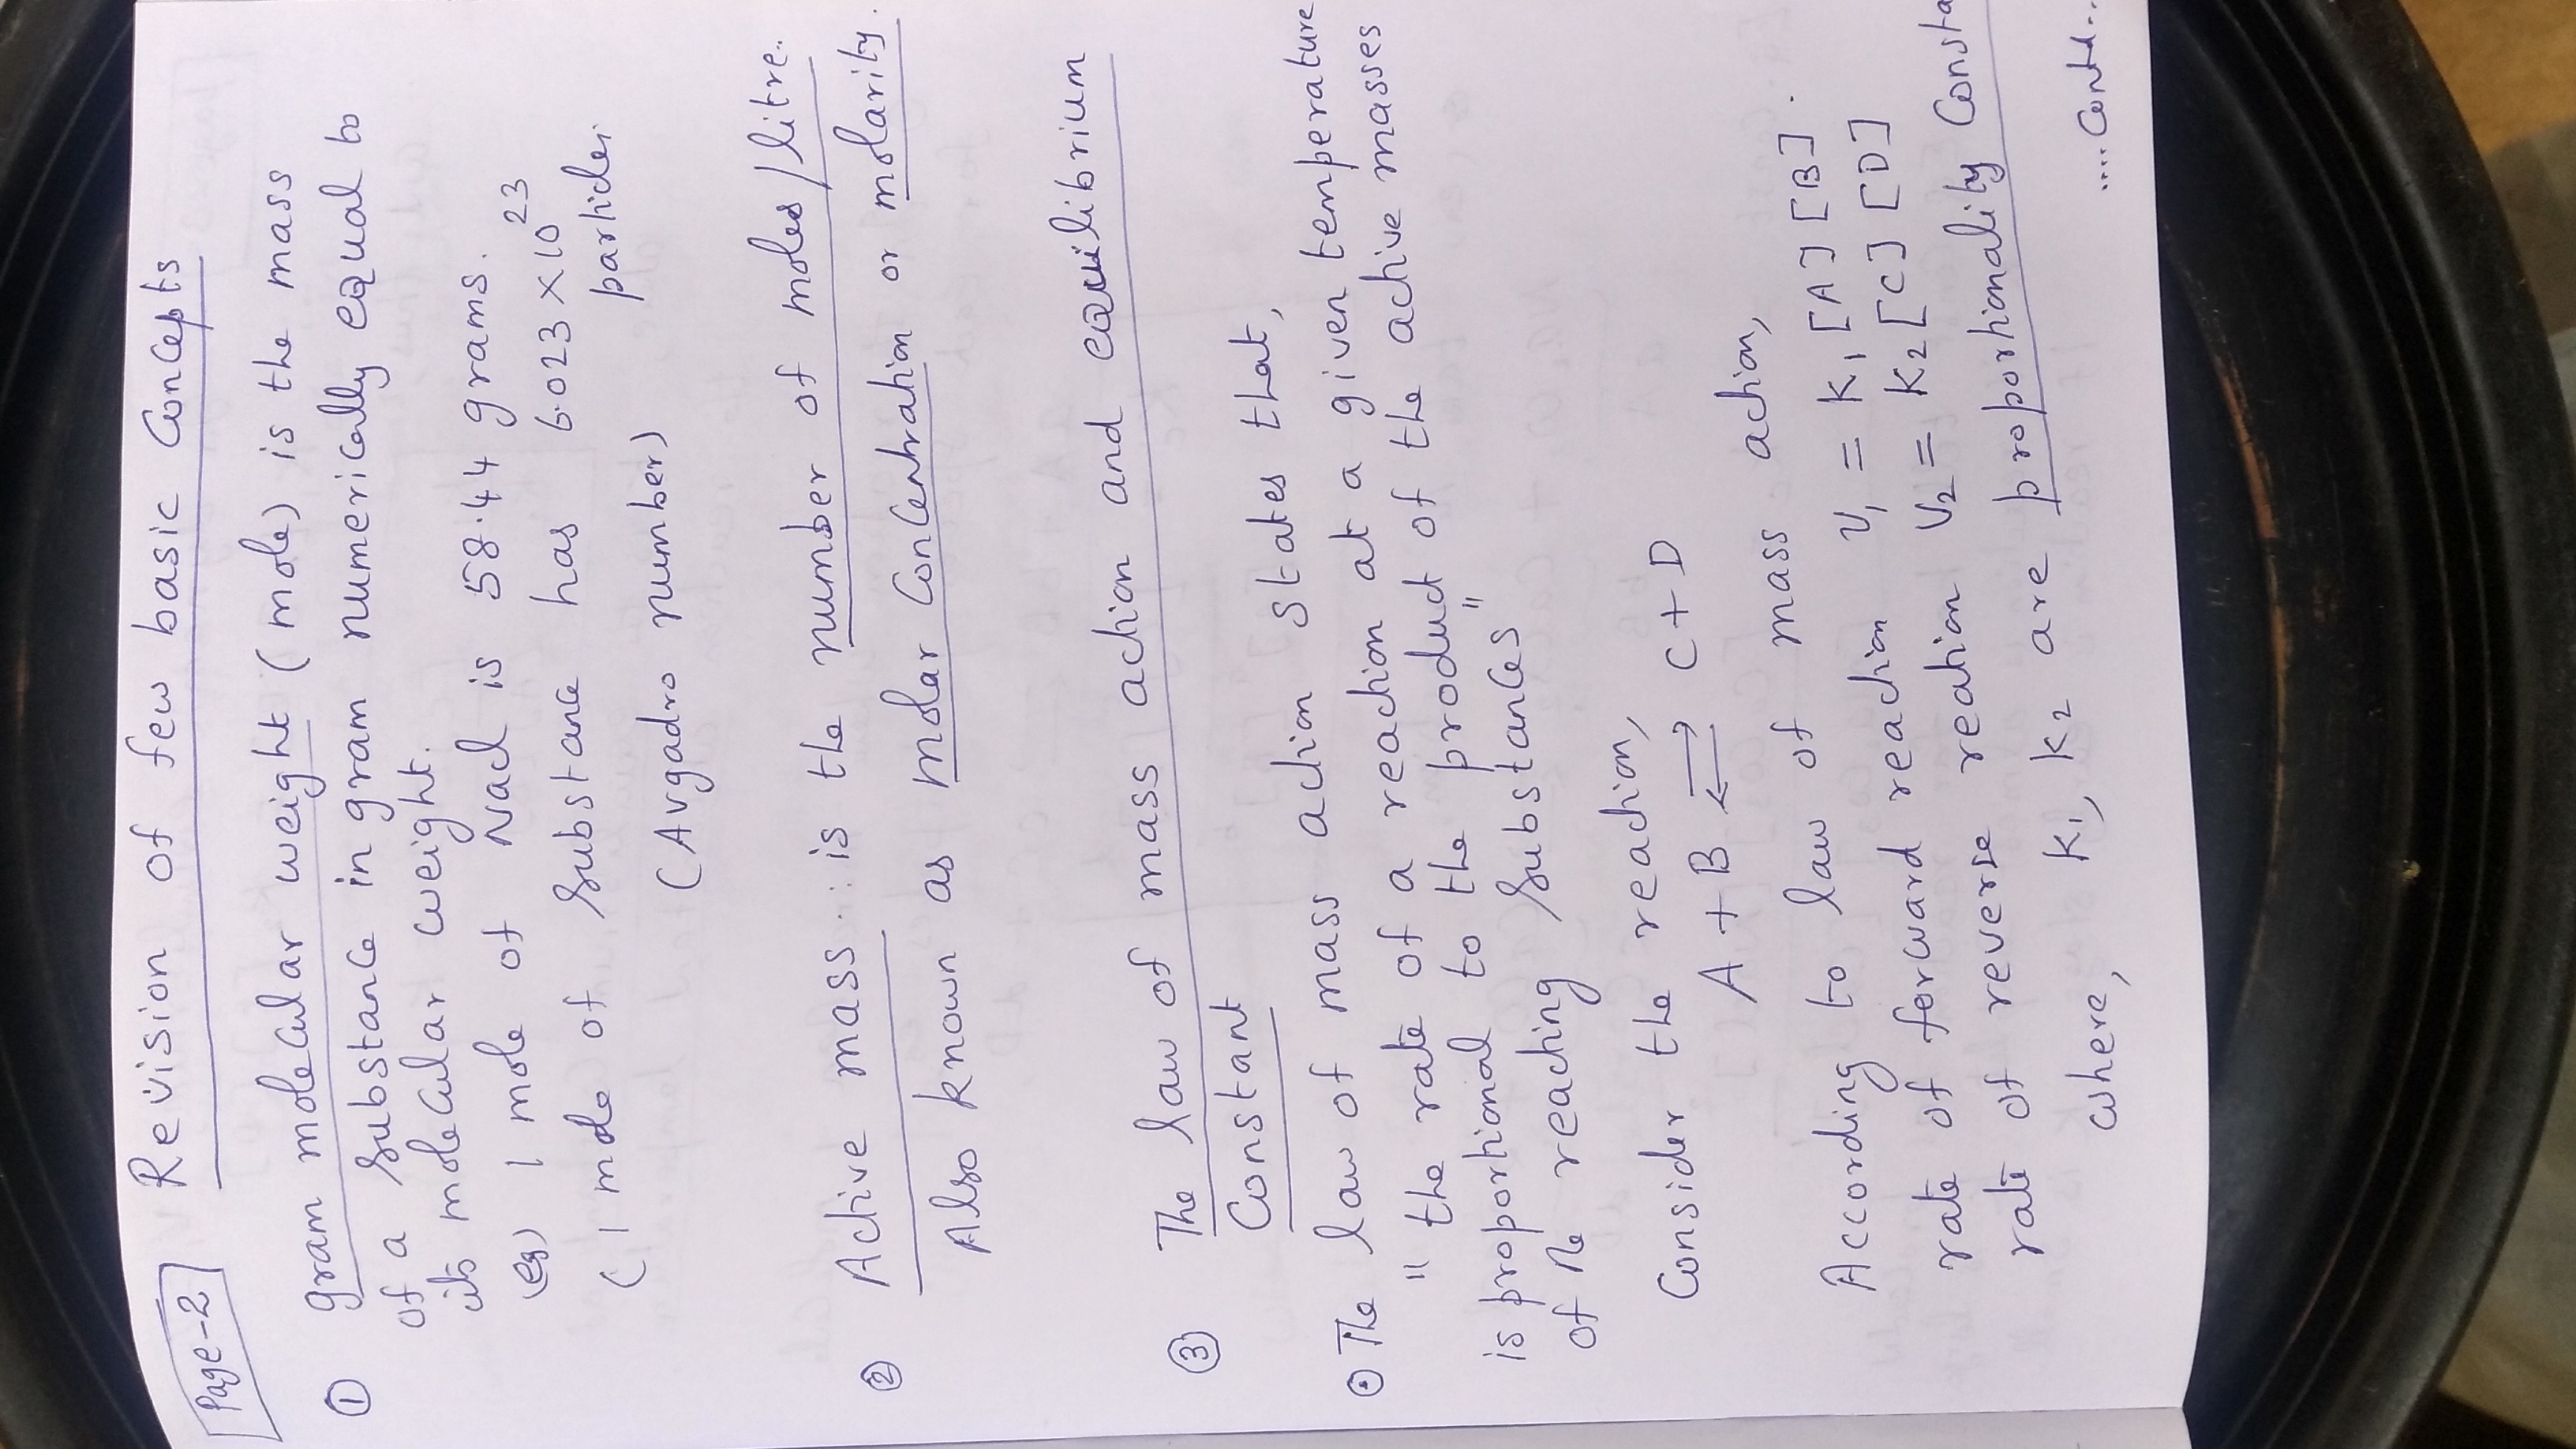 Page-2
Revision of few basic Concepts
① gram molecular weight (mole) is the mass
of a substance in gram numerically equal to
its molecular weight.
(eg) 1 mole of Nacl is 58.44 grams.
(1 mole of substance has 6.023 × 10²³
particles
(Avgadro number)
② Active mass : is the number of moles/litre.
Also known as molar Concentration or molarity.
③ The law of mass action and equilibrium
Constant
⊙ The law of mass action states that,
"the rate of a reaction at a given temperature
is proportional to the product of the active masses
of the reacting substances"
Consider the reaction,
A + B ⇌ C + D
According to law of mass action,
rate of forward reaction V₁ = K₁ [A] [B].
rate of reverse reation V₂ = K₂ [C] [D]
where, K₁, K₂ are proportionality Consta
.... Contd..